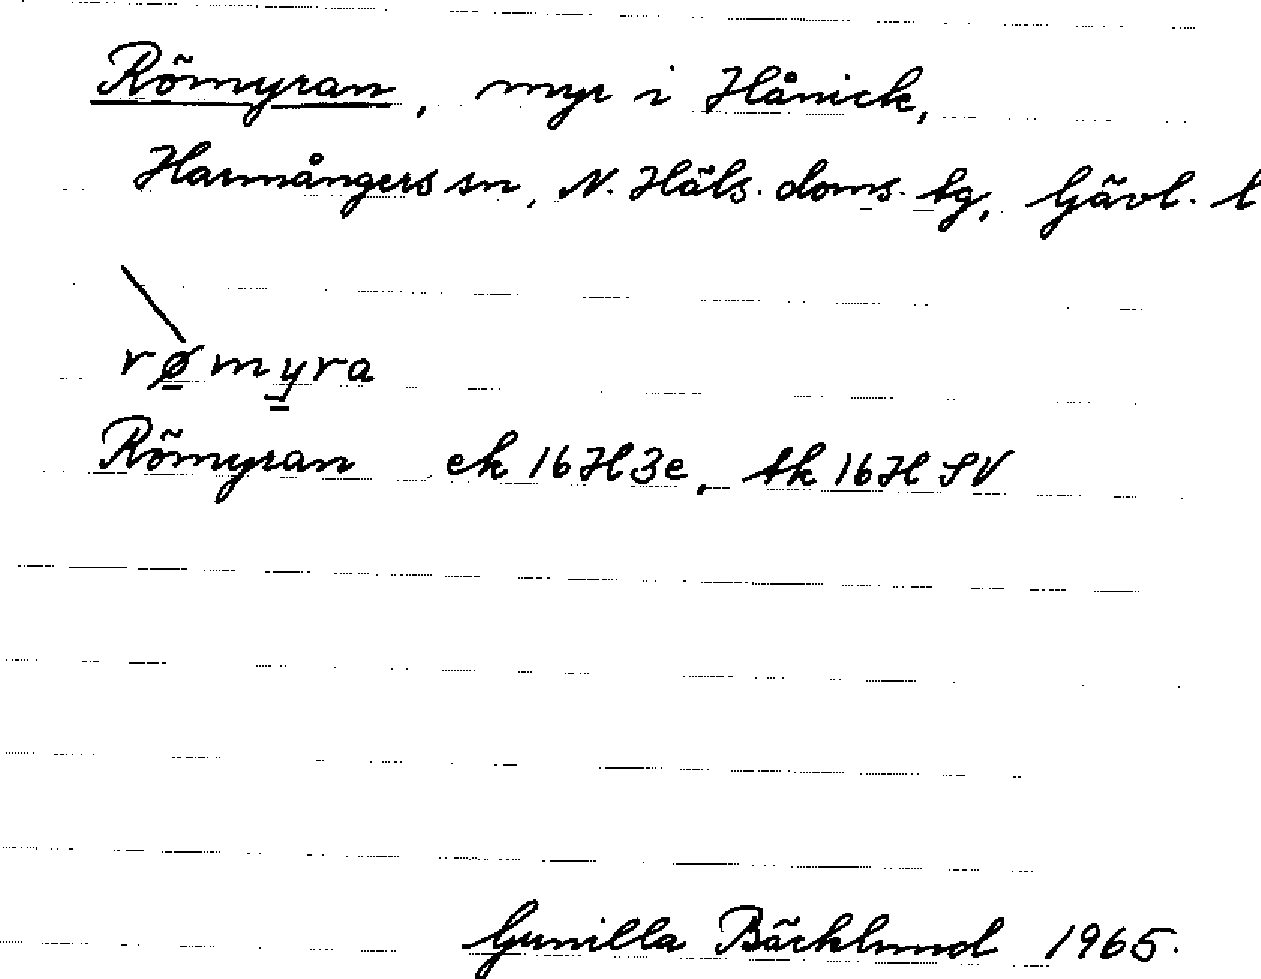 Römyran, myr i Hånick,
Harmångers sn, N. Häls. doms. tg, Gävl. l
rømyra
Römyran ek 16H3e, tk 16H SV
Gunilla Bäcklund 1965.